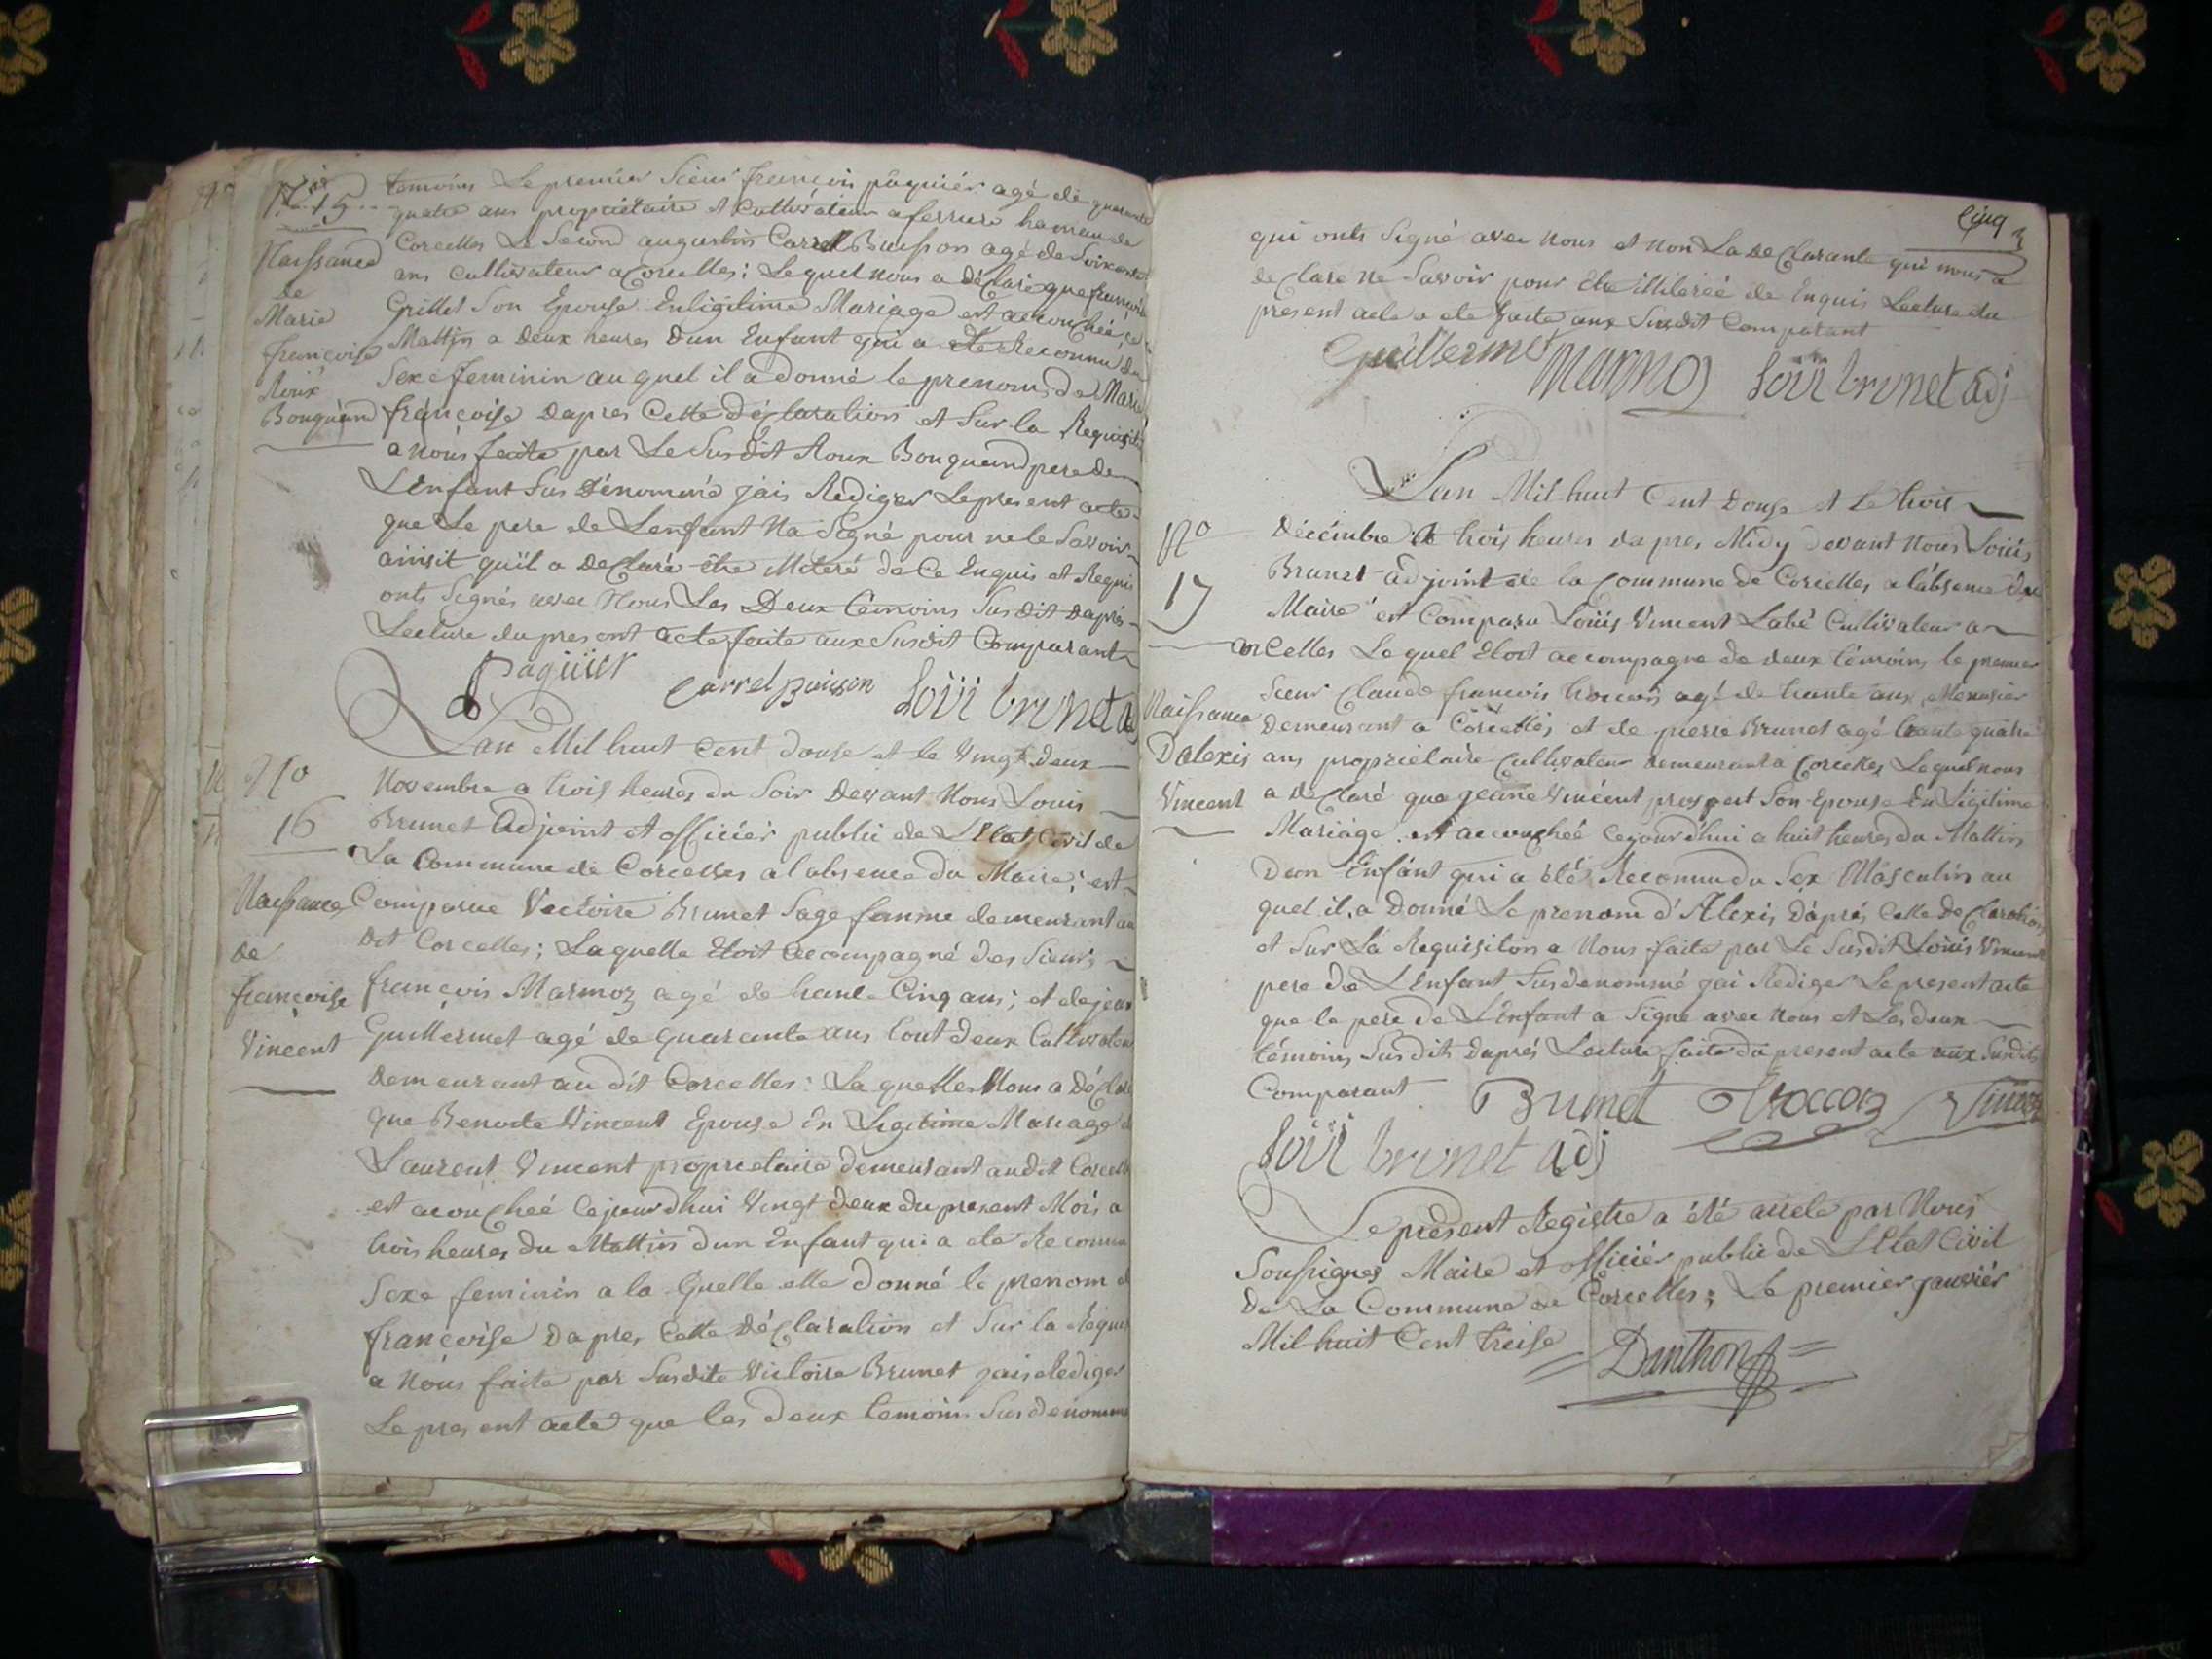 No 15
Naissance
de
Marie
françoise
Roux
Bouquand
temoins Le premier Sieur françois paquiér agé de quarante
quatre ans propriétaire et Cultivateur a ferrure hameau de
Corcelles Le Second augustin Carrel Buisson agé de Soixante
ans Cultivateur a Corcelles; Lequel nous a déClaré que françoise
Grillet Son Epouse En légitime Mariage est accouchée, ce
Mattin a Deux heures Dun Enfant qui a ete Reconnu du
Sexe feminin au quel il a donné le prenom de Marie
françoise Dapres Cette DéClaration et Sur la Requisition
a nous faite par Le Susdit Roux Bouquand pere de
LEnfant Sus Dénommé jais Rediger Le present acte
que Le pere de Lenfant Na Signé pour ne le Savoir
ainsit quïl a DeClaré être illiteré de Ce Enquis et Requis
onts Signés avec Nous Les Deux témoins Susdit Daprés
Lecture du present acte faite aux Susdit Comparant
Paquier Carrel Buisson Loüi brunet adj
No
16
Naissance
de
françoise
Vincent
Lan Mil huit Cent Douse et le Vingt deux
Novembre a trois heures du Soir Devant Nous Louis
Brunet Adjoint et officiér public de LEtat Civil de
La Commune de Corcelles a labsence du Maire; est
Comparue Victoire Brunet Sage femme demeurant au
Dit Corcelles; Laquelle Etoit accompagné des Sieurs
françois Marmoz agé de trente Cinq ans; et de jean
Guillermet agé de quarante ans tout deux Cultivateur
Demeurant au dit Corcelles: La quelles Nous a DéClaré
que Benoite Vincent Epouse En Legitime Mariage de
Laurent Vincent proprietaire demeurant audit Corcelles
est acouchéé Cejourdhui Vingt deux du present Mois a
trois heures du Mattin dun Enfant qui a ete Reconnu
Sexe feminin a la Quelle elle donné le prenom de
françoise Dapres Cette DéClaration et Sur la Requis
a Nous faite par Susdite Victoire Brunet jais Rediger
Le present acte que les deux temoins Susdenommé
Cinq
qui onts Signé avec nous et non La DeClarante qui nous a
deClare ne Savoir pour Etre illiteréé de Enquis Lecture du
present acte a ete faite aux Susdit Comparant
Guillermet Marmoz Loüi brunet adj
No
17
Naissance
Dalexis
Vincent
Lan Mil huit Cent Douse et Le trois
décémbre a trois heures dapres Midy Devant Nous Loüis
Brunet adjoint de la Commune de Corcelles a lábsence du
Maire est Comparu Loüis Vincent Labé Cultivateur a
Corcelles Lequel Etoit accompagne de deux témoins le premier
Sieur Claude françois trocon agé de trante ans, Menusier
Demeurant a Corcelles et de pierre Brunet agé trante quatre
ans propriétaire Cultivateur demeurant a Corcelles Lequel nous
a deClaré que jeanne Vincent prospert Son Epouse En Légitime
Mariáge est accouchéé Cejourdhui a huit heures du Mattin
Dun Enfant qui a été Reconnu du Sex Masculin au
quel il a Donné Le prenom d'Alexis Daprés Cette DeClaration
et Sur La Requisition a Nous faite par Le Susdit Loüis Vincent
pere de LEnfant Susdenommé jai Rediger Le present acte
que le pere de LEnfant a Signe avec Nous et Les deux
témoins Susdits Daprés Lecture faite du present acte aux Susdits
Comparant Brunet Troccon Vincent
Loüi brunet adj
Le présent Registre a été arrete par Nous
Soussignes Maire et officiér public de LEtat Civil
De La Commune de Corcelles; Le premier janviér
Mil huit Cent treise
Danthon